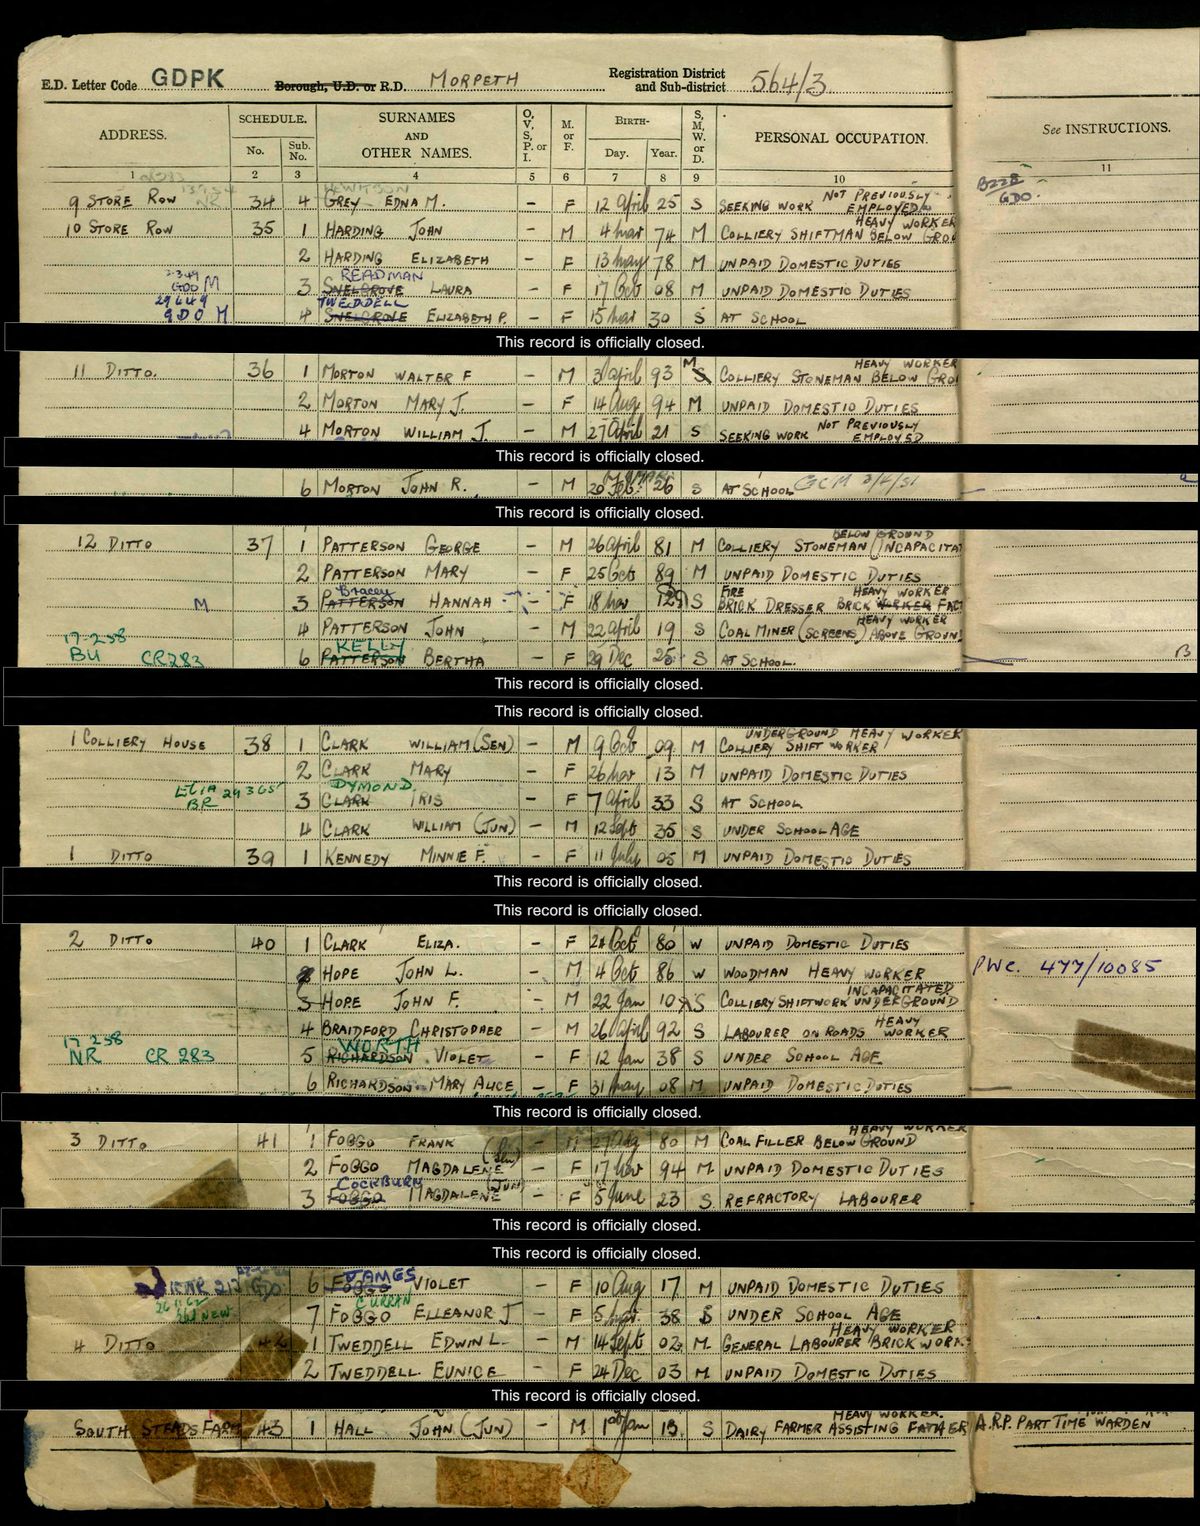 E.D. Letter Code GDPK Borough, U.D. or R.D. MORPETH Registration District and Sub-district 564/3
ADDRESS. SCHEDULE. No. Sub. No. SURNAMES AND OTHER NAMES. O, V, S, P. or I. M. or F. BIRTH- Day. Year. S, M, W. or D. PERSONAL OCCUPATION. See INSTRUCTIONS.
1 2 3 4 5 6 7 8 9 10 11
HEWITSON NOT PREVIOUSLY B228
9 STORE ROW NR 34 4 GREY EDNA M. - F 12 April 25 S SEEKING WORK EMPLOYED GDO.
HEAVY WORKER
10 STORE ROW 35 1 HARDING JOHN - M 4 Mar 74 M COLLIERY SHIFTMAN BELOW GROU
2 HARDING ELIZABETH - F 13 May 78 M UNPAID DOMESTIC DUTIES
2.3.49 READMAN
GDO M 3 SNELGROVE LAURA - F 17 Oct 08 M UNPAID DOMESTIC DUTIES
29649 TWEDDELL
GDO M 4 SNELGROVE ELIZABETH P. - F 15 Mar 30 S AT SCHOOL
This record is officially closed.
HEAVY WORKER
11 DITTO. 36 1 MORTON WALTER F - M 3 April 93 M S COLLIERY STONEMAN BELOW GRO
2 MORTON MARY J. - F 14 Aug 94 M UNPAID DOMESTIC DUTIES
NOT PREVIOUSLY
4 MORTON WILLIAM J. - M 27 April 21 S SEEKING WORK EMPLOYED
This record is officially closed.
6 MORTON JOHN R. - M 20 Feb. 26 S AT SCHOOL GCM 2/4/51
This record is officially closed.
BELOW GROUND
12 DITTO 37 1 PATTERSON GEORGE - M 26 April 81 M COLLIERY STONEMAN (INCAPACITAT
2 PATTERSON MARY - F 25 Oct 89 M UNPAID DOMESTIC DUTIES
Bracey FIRE HEAVY WORKER
M 3 PATTERSON HANNAH - F 18 Nov 12 S BRICK DRESSER BRICK WORKER FAC
HEAVY WORKER
4 PATTERSON JOHN - M 22 April 19 S COAL MINER (SCREENS) ABOVE GROUN
17-2-58 KELLY
BU CR283 6 PATTERSON BERTHA - F 29 Dec 25 S AT SCHOOL.
This record is officially closed.
This record is officially closed.
UNDERGROUND HEAVY WORKER
1 COLLIERY HOUSE 38 1 CLARK WILLIAM (SEN) - M 9 Oct 09 M COLLIERY SHIFT WORKER
2 CLARK MARY - F 26 Nov 13 M UNPAID DOMESTIC DUTIES
24365 DYMOND
BR 3 CLARK IRIS - F 7 April 33 S AT SCHOOL
4 CLARK WILLIAM (JUN) - M 12 Sept 35 S UNDER SCHOOL AGE
1 DITTO 39 1 KENNEDY MINNIE F. - F 11 July 05 M UNPAID DOMESTIC DUTIES
This record is officially closed.
This record is officially closed.
2 DITTO 40 1 CLARK ELIZA. - F 21 Oct 80 W UNPAID DOMESTIC DUTIES
2 HOPE JOHN L. - M 4 Oct 86 W WOODMAN HEAVY WORKER PWC. 477/10085
INCAPACITATED
3 HOPE JOHN F. - M 22 Jan 10 S COLLIERY SHIFTWORK UNDERGROUND
HEAVY
4 BRAIDFORD CHRISTOPHER - M 26 April 92 S LABOURER ON ROADS WORKER
17-2-58 WORTH
NR CR 283 5 RICHARDSON VIOLET - F 12 Jan 38 S UNDER SCHOOL AGE
6 RICHARDSON MARY ALICE - F 31 May 08 M UNPAID DOMESTIC DUTIES
This record is officially closed.
HEAVY WORKER
3 DITTO 41 1 FOGGO FRANK (Sen) - M 27 Aug 80 M COAL FILLER BELOW GROUND
2 FOGGO MAGDALENE - F 17 Nov 94 M UNPAID DOMESTIC DUTIES
COCKBURN (JUN)
3 FOGGO MAGDALENE - F 5 June 23 S REFRACTORY LABOURER
This record is officially closed.
This record is officially closed.
JAMES
GDO 6 FOGGO VIOLET - F 10 Aug 17 M UNPAID DOMESTIC DUTIES
CURRAN
7 FOGGO ELLEANOR J - F 5 Mar. 38 S UNDER SCHOOL AGE
HEAVY WORKER
4 DITTO 42 1 TWEDDELL EDWIN L. - M 14 Sept 02 M GENERAL LABOURER BRICK WORK
2 TWEDDELL EUNICE - F 24 Dec 03 M UNPAID DOMESTIC DUTIES
This record is officially closed.
HEAVY WORKER.
SOUTH STEADS FARM 43 1 HALL JOHN (JUN) - M 1st Jan 13 S DAIRY FARMER ASSISTING FATHER A.R.P. PART TIME WARDEN